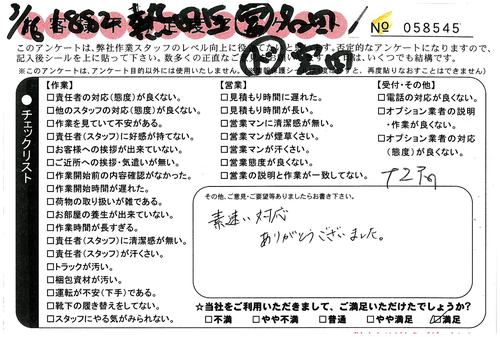 No 058545
このアンケートは、弊社作業スタッフのレベル向上に役
否定的なアンケートになりますので、
記入後シールを上に貼って下さい。数多くの正直な
いくつでも結構です。
※このアンケートは、アンケート目的以外には使用いたしません。
再度貼りなおすことはできません)
チェックリスト
【作業】
□責任者の対応(態度)が良くない。
□他のスタッフの対応(態度)が良くない。
□作業を見ていて不安がある。
□責任者(スタッフ)に好感が持てない。
□お客様への挨拶が出来ていない。
□ご近所への挨拶・気遣いが無い。
□作業開始前の内容確認がなかった。
□作業開始時間が遅れた。
□荷物の取り扱いが雑である。
□お部屋の養生が出来ていない。
□作業時間が長すぎる。
□責任者(スタッフ)に清潔感が無い。
□責任者(スタッフ)が汗くさい。
□トラックが汚い。
□梱包資材が汚い。
□運転が不安(下手)である。
□靴下の履き替えをしてない。
□スタッフにやる気がみられない。
【営業】
□見積もり時間に遅れた。
□見積もり時間が長い。
□営業マンに清潔感が無い。
□営業マンが煙草くさい。
□営業マンが汗くさい。
□営業態度が良くない。
□営業の説明と作業が一致してない。
【受付・その他】
□電話の対応が良くない。
□オプション業者の説明
・作業が良くない。
□オプション業者の対応
(態度)が良くない。
その他、ご意見・ご要望等ありましたらお書き下さい。
素速い対応
ありがとうございました。
☆当社をご利用いただきまして、ご満足いただけたでしょうか?
□不満 □やや不満 □普通 □やや満足 ☑満足